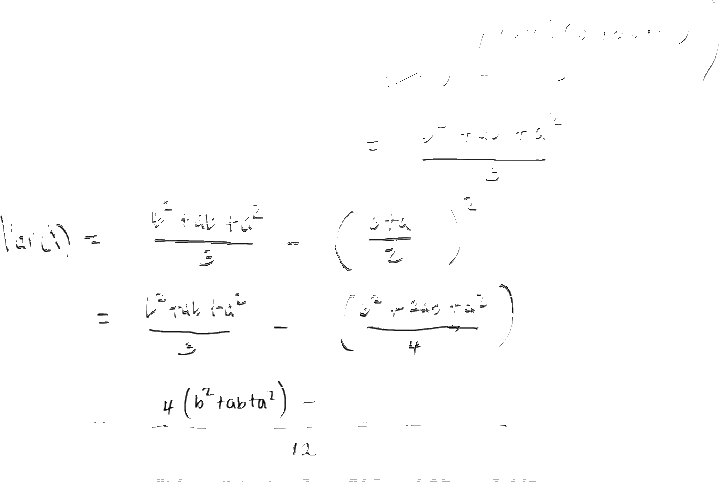 = b² + ab + a² / 3
Var(X) = b² + ab + a² / 3 - ( b + a / 2 )²
= b² + ab + a² / 3 - ( b² + 2ab + a² / 4 )
4 ( b² + ab + a² ) - / 12